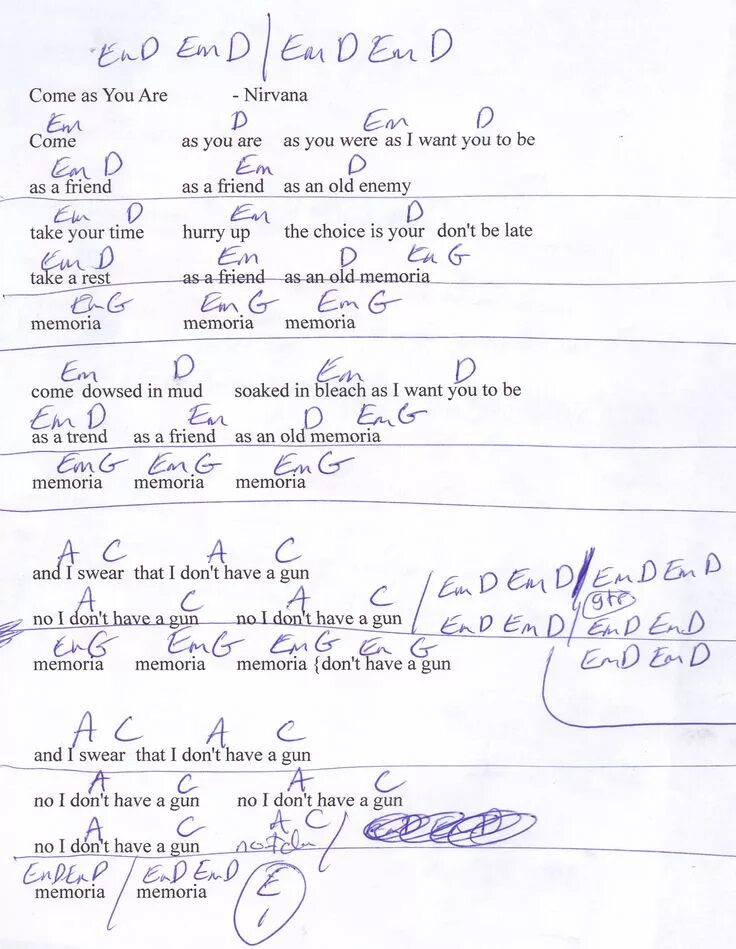 Em D Em D | Em D Em D
Come as You Are - Nirvana
Em D Em D
Come as you are as you were as I want you to be
Em D Em D
as a friend as a friend as an old enemy
Em D Em D
take your time hurry up the choice is your don't be late
Em D Em D Em G
take a rest as a friend as an old memoria
Em G Em G Em G
memoria memoria memoria
Em D Em D
come dowsed in mud soaked in bleach as I want you to be
Em D Em D Em G
as a trend as a friend as an old memoria
Em G Em G Em G
memoria memoria memoria
A C A C
and I swear that I don't have a gun
A C A C / Em D Em D / Em D Em D
no I don't have a gun no I don't have a gun
gtr
Em D Em D / Em D Em D
Em G Em G Em G Em G Em D Em D
memoria memoria memoria {don't have a gun
A C A C
and I swear that I don't have a gun
A C A C
no I don't have a gun no I don't have a gun
A C A C /
no I don't have a gun
Em D Em D / Em D Em D E
memoria memoria